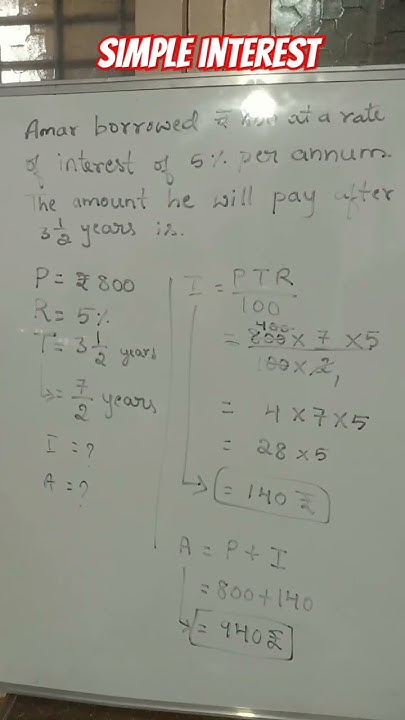 SIMPLE INTEREST
Amar borrowed ₹ at a rate
of interest of 5% per annum.
The amount he will pay after
3 1/2 years is.
P = ₹ 800
R = 5%
T = 3 1/2 years
= 7/2 years
I = ?
A = ?
I = PTR/100
= 800 400 × 7 × 5 / 100 × 2 1
= 4 × 7 × 5
= 28 × 5
= 140 ₹
A = P + I
= 800 + 140
= 940 ₹